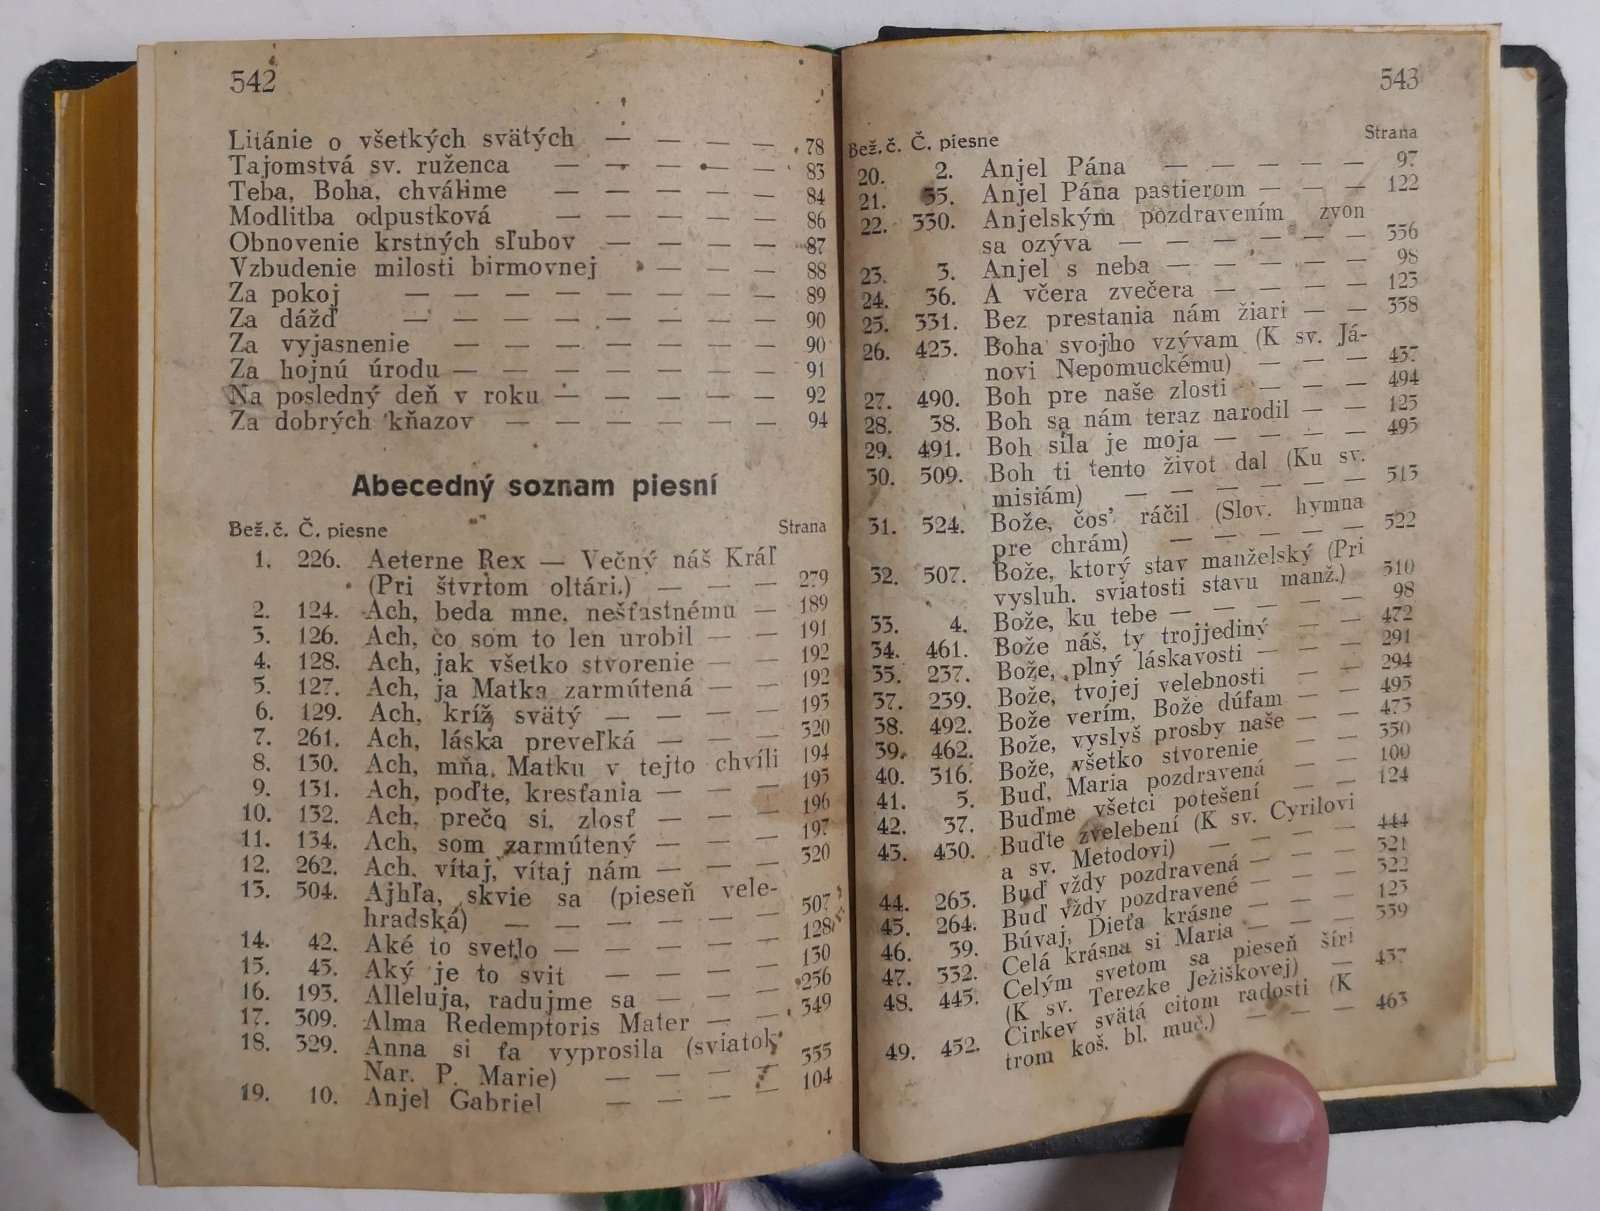 542
Litánie o všetkých svätých — — — — 78
Tajomstvá sv. ruženca — — — — — 83
Teba, Boha, chválime — — — — — 84
Modlitba odpustková — — — — — 86
Obnovenie krstných sľubov — — — — 87
Vzbudenie milosti birmovnej — — — 88
Za pokoj — — — — — — — — 89
Za dážď — — — — — — — — 90
Za vyjasnenie — — — — — — — 90
Za hojnú úrodu — — — — — — — 91
Na posledný deň v roku — — — — — 92
Za dobrých kňazov — — — — — — 94
Abecedný soznam piesní
Bež. č. Č. piesne Strana
1. 226. Aeterne Rex — Večný náš Kráľ
(Pri štvrtom oltári.) — — — 279
2. 124. Ach, beda mne, nešťastnému — 189
3. 126. Ach, čo som to len urobil — — 191
4. 128. Ach, jak všetko stvorenie — — 192
5. 127. Ach, ja Matka zarmútená — — 192
6. 129. Ach, kríž svätý — — — — 193
7. 261. Ach, láska preveľká — — — 320
8. 130. Ach, mňa, Matku v tejto chvíli 194
9. 131. Ach, poďte, kresťania — — — 195
10. 132. Ach, prečo si, zlosť — — — 196
11. 134. Ach, som zarmútený — — — 197
12. 262. Ach, vítaj, vítaj nám — — — 320
13. 504. Ajhľa, skvie sa (pieseň vele-
hradská) — — — — — — 507
14. 42. Aké to svetlo — — — — — 128
15. 45. Aký je to svit — — — — 130
16. 193. Alleluja, radujme sa — — — 256
17. 309. Alma Redemptoris Mater — — 349
18. 329. Anna si ťa vyprosila (sviatok
Nar. P. Marie) — — — — 355
19. 10. Anjel Gabriel — — — — 104
543
Bež. č. Č. piesne Strana
20. 2. Anjel Pána — — — — — 97
21. 35. Anjel Pána pastierom — — — 122
22. 330. Anjelským pozdravením zvon
sa ozýva — — — — — — 356
23. 3. Anjel s neba — — — — — 98
24. 36. A včera zvečera — — — — 123
25. 331. Bez prestania nám žiari — — 358
26. 423. Boha svojho vzývam (K sv. Já-
novi Nepomuckému) — — — 437
27. 490. Boh pre naše zlosti — — — 494
28. 38. Boh sa nám teraz narodil — — 125
29. 491. Boh sila je moja — — — — 495
30. 509. Boh ti tento život dal (Ku sv.
misiám) — — — — — — 513
31. 524. Bože, čos' ráčil (Slov. hymna
pre chrám) — — — — — 522
32. 507. Bože, ktorý stav manželský (Pri
vysluh. sviatosti stavu manž.) 510
33. 4. Bože, ku tebe — — — — — 98
34. 461. Bože náš, ty trojjediný — — 472
35. 237. Bože, plný láskavosti — — — 291
37. 239. Bože, tvojej velebnosti — — 294
38. 492. Bože verím, Bože dúfam — — 495
39. 462. Bože, vyslyš prosby naše — — 473
40. 316. Bože, všetko stvorenie — — 350
41. 5. Buď, Maria pozdravená — — 100
42. 37. Buďme všetci potešení — — 124
43. 430. Buďte zvelebení (K sv. Cyrilovi
a sv. Metodovi) — — — — 444
44. 263. Buď vždy pozdravená — — — 321
45. 264. Buď vždy pozdravené — — — 322
46. 39. Búvaj, Dieťa krásne — — — 125
47. 332. Celá krásna si Maria — — — 359
48. 445. Celým svetom sa pieseň šíri
(K sv. Terezke Ježiškovej) — 457
49. 452. Cirkev svätá citom radosti (K
trom koš. bl. muč.) — — — 463